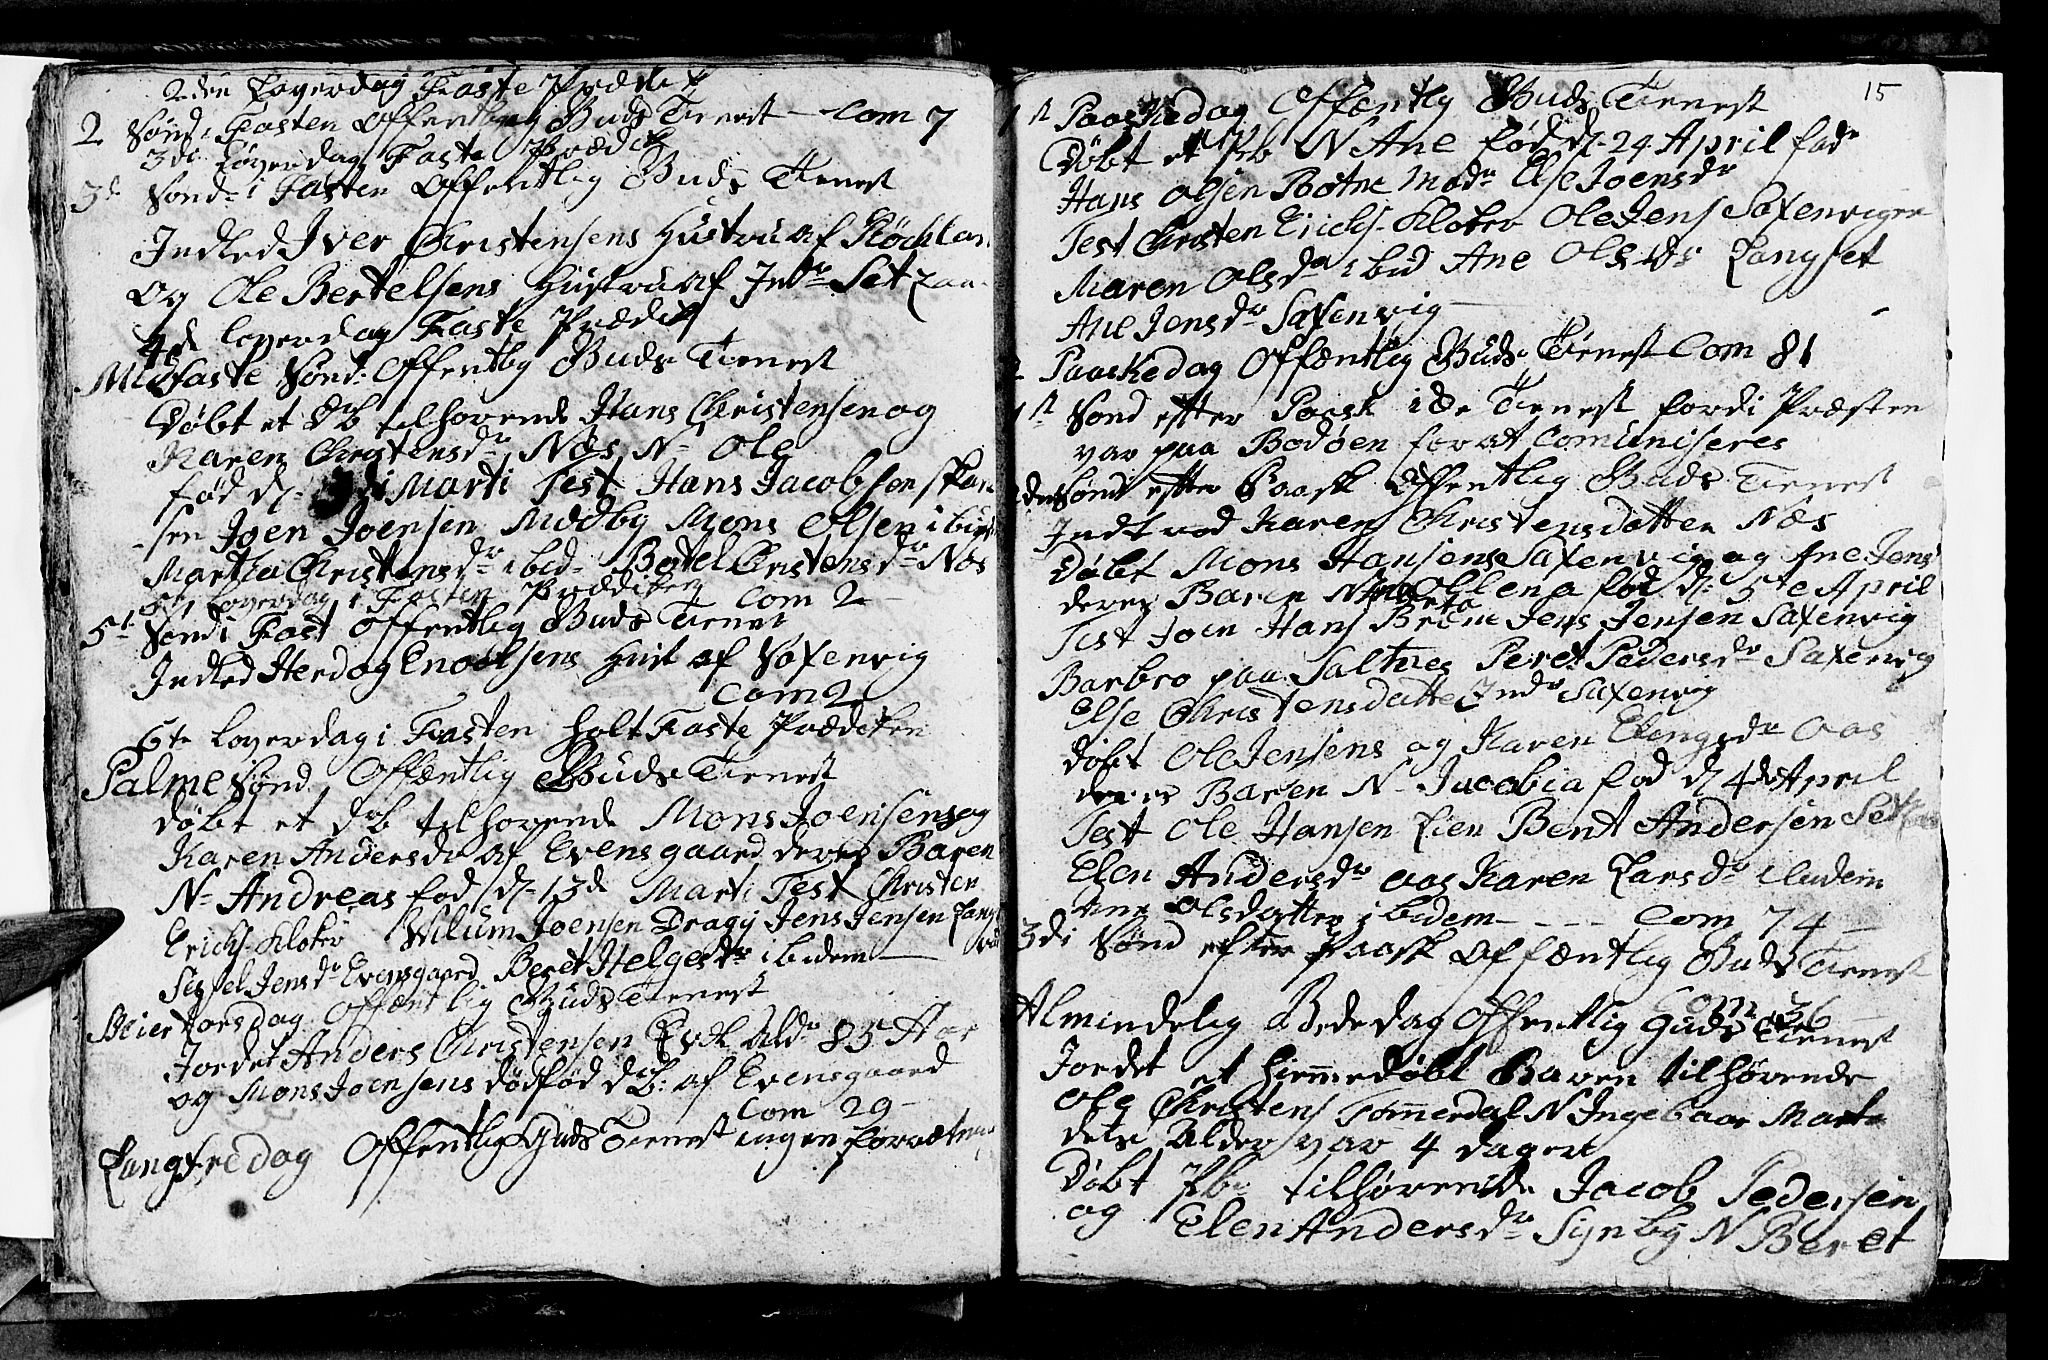 2den Løverdag Faste Prædik
2 Sønd i Fasten Offentlig Guds Tienest – Com 7
3de Løverdag Faste Prædik
3de Sønd i Fasten Offentlig Guds Tienest
Indled Iver Christensens Hustru af
og Ole Bertelsens Hustru af Indr Set
4de Løverdag Faste Prædik
Midfaste Sønd: Offentlig Guds Tienest
Døbt et db tilhørende Hans Christensen og
Karen Christensdr Næs N Ole
fød d Marti Test Hans Jacobsen
Joen Joensen Mædby Mons Olsen ibid
Martha Christensdr ibid Botel Christensdr Næs
Løverdag i Fasten Prædiken
5te Sønd i Fast Offentlig Guds Tienest Com 2
Indled Herdog Enochsens Hust af Saxenvig
Com 2
6te Løverdag i Fasten holt Faste Prædiken
Palme Sønd Offentlig Guds Tienest
døbt et db tilhørende Mons Joensens og
Karen Andersdr af Evensgaard deres Baren
N Andreas fød d 13de Marti Test Christen
Erichs Kløkr Wilum Joensen Dragø Jens Jensen
Sessel Jensdr Evensgaard Beret Helgesdr ibidem
Skier Torsdag Offentlig Guds Tienest
Jordet Anders Christensen Aldr 85 Aar
og Mons Joensens dødfød db: af Evensgaard
Com 29
Langfredag Offentlig Guds Tienest ingen forretning
15
1st Paaskedag Offentlig Guds Tienest
Døbt et Pb N Ane fød d 24 April fadr
Hans Olsen Botne Modr Else Joensdr
Test Christen Erichs Kløkr Ole Jens Saxenvigen
Maren Olsdr ibid Ane Olsdr Langset
Ane Jensdr Saxenvig
2 Paaskedag Offentlig Guds Tienest Com 81
1st Sønd efter Paask i de Tienest fordi Præsten
var paa Bodøen for at Comuniseres
2den Sønd efter Paask Offentlig Guds Tienest
Karen Christensdatter Næs
Døbt Mons Hansens Saxenvig og Ane Jens
deres Baren N Ellena fød d 5te April
Test Joen Hans Jens Jensen Saxenvig
Barbro paa Saltnes Peret Pedersdr Saxenvig
Else Christensdatter Indr Saxenvig
døbt Ole Jensens og Karen Elingsdr Aas
deres Baren N Jacobia fød d 4de April
Test Ole Hansen Lien Bent Andersen
Elen Andersdr Aas Karen Larsdr ibidem
Ane Olsdatter ibidem – – – Com 74 –
3di Sønd efter Paask Offentlig Guds Tienest
Com 36
Almindelig Bededag Offentlig Guds Tienest
Jordet et hiemmedøbt Baren tilhørende
Ole Christens Tømmerdal N Ingebaar Marta
dets Alder var 4 dager
Døbt Pb tilhørende Jacob Pedersen
og Elen Andersdr Synby N Beret